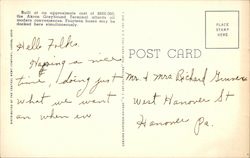 Built at an approximate cost of $500,000,
the Akron Greyhound Terminal affords all
modern conveniences. Fourteen buses may be
docked here simultaneously.
POST CARD
PLACE
STAMP
HERE
Hello Folks.
Having a nice
time, doing just
what we want
an when we
Mr. & Mrs Richard
West Hanover St
Hanover
Pa.